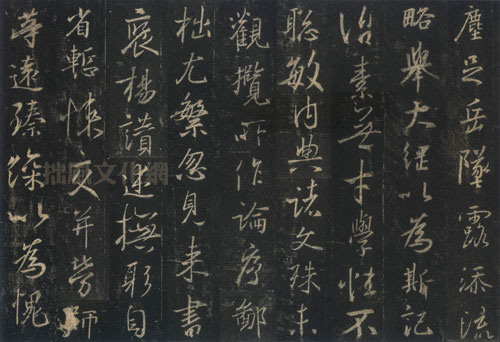 塵足岳墜露添流
略舉大綱以為斯記
治素無才學性不
聰敏內典諸文殊未
觀攬所作論序鄙
拙尤繁忽見來書
褒揚讚述撫躬自
省慙悚交并勞師
等遠臻深以為愧
拙文化網